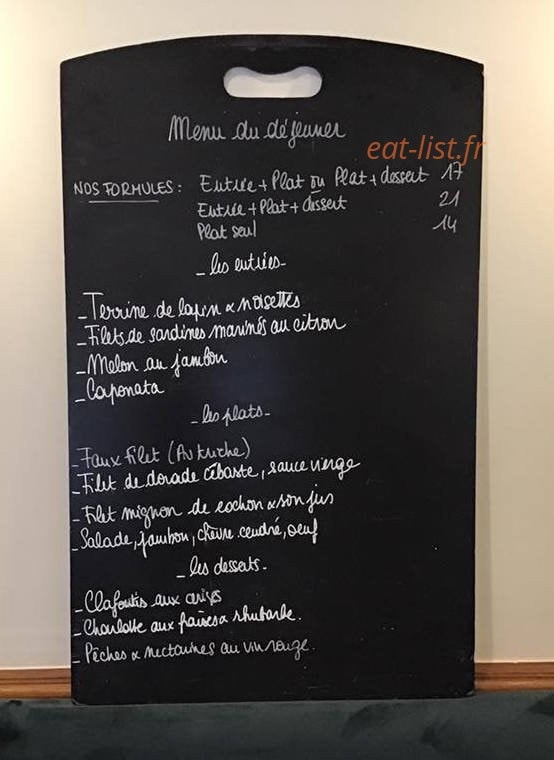 Menu du déjeuner
eat-list.fr
NOS FORMULES : Entrée + Plat ou Plat + dessert 17
Entrée + Plat + dessert 21
Plat seul 14
- les entrées -
- Terrine de lapin & noisettes
- Filets de sardines marinés au citron
- Melon au jambon
- Caponata
- les plats -
- Faux filet (Autruche)
- Filet de dorade cébaste, sauce vierge
- Filet mignon de cochon & son jus
- Salade, jambon, chèvre cendré, oeuf
- les desserts -
- Clafoutis aux
- Charlotte aux fraises & rhubarbe.
- Pêches & nectarines au vin rouge.